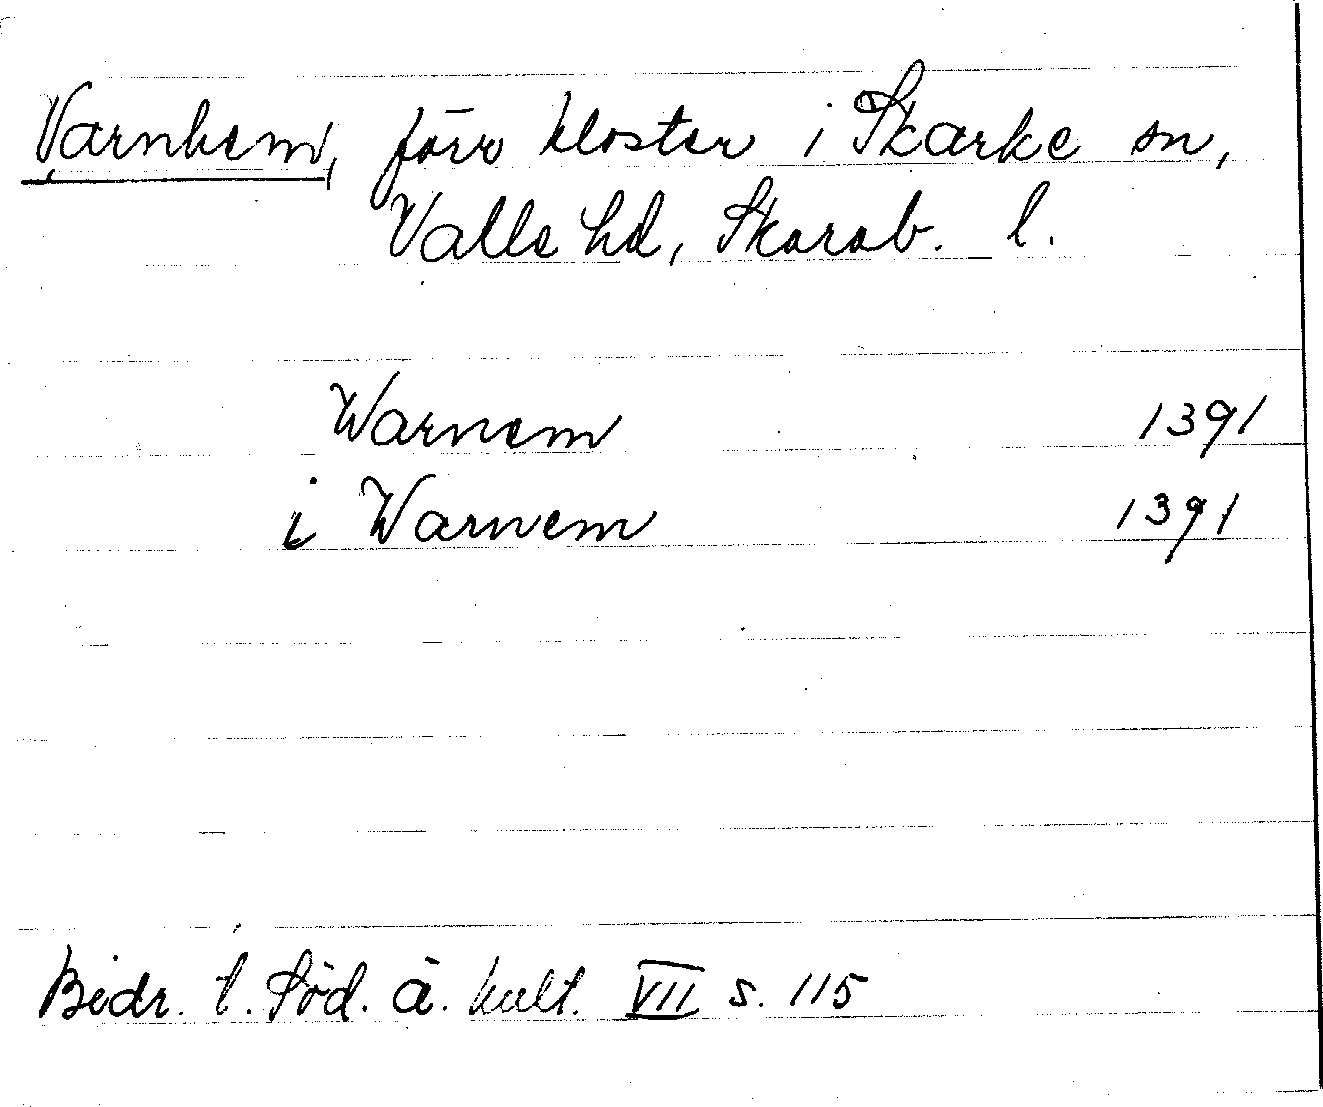 Varnhem, förr kloster i Skarke sn,
Valle hd, Skarab. l.
Warnem 1391
i Warnem 1391
Bidr. t. Söd. ä. kult. VII s. 115